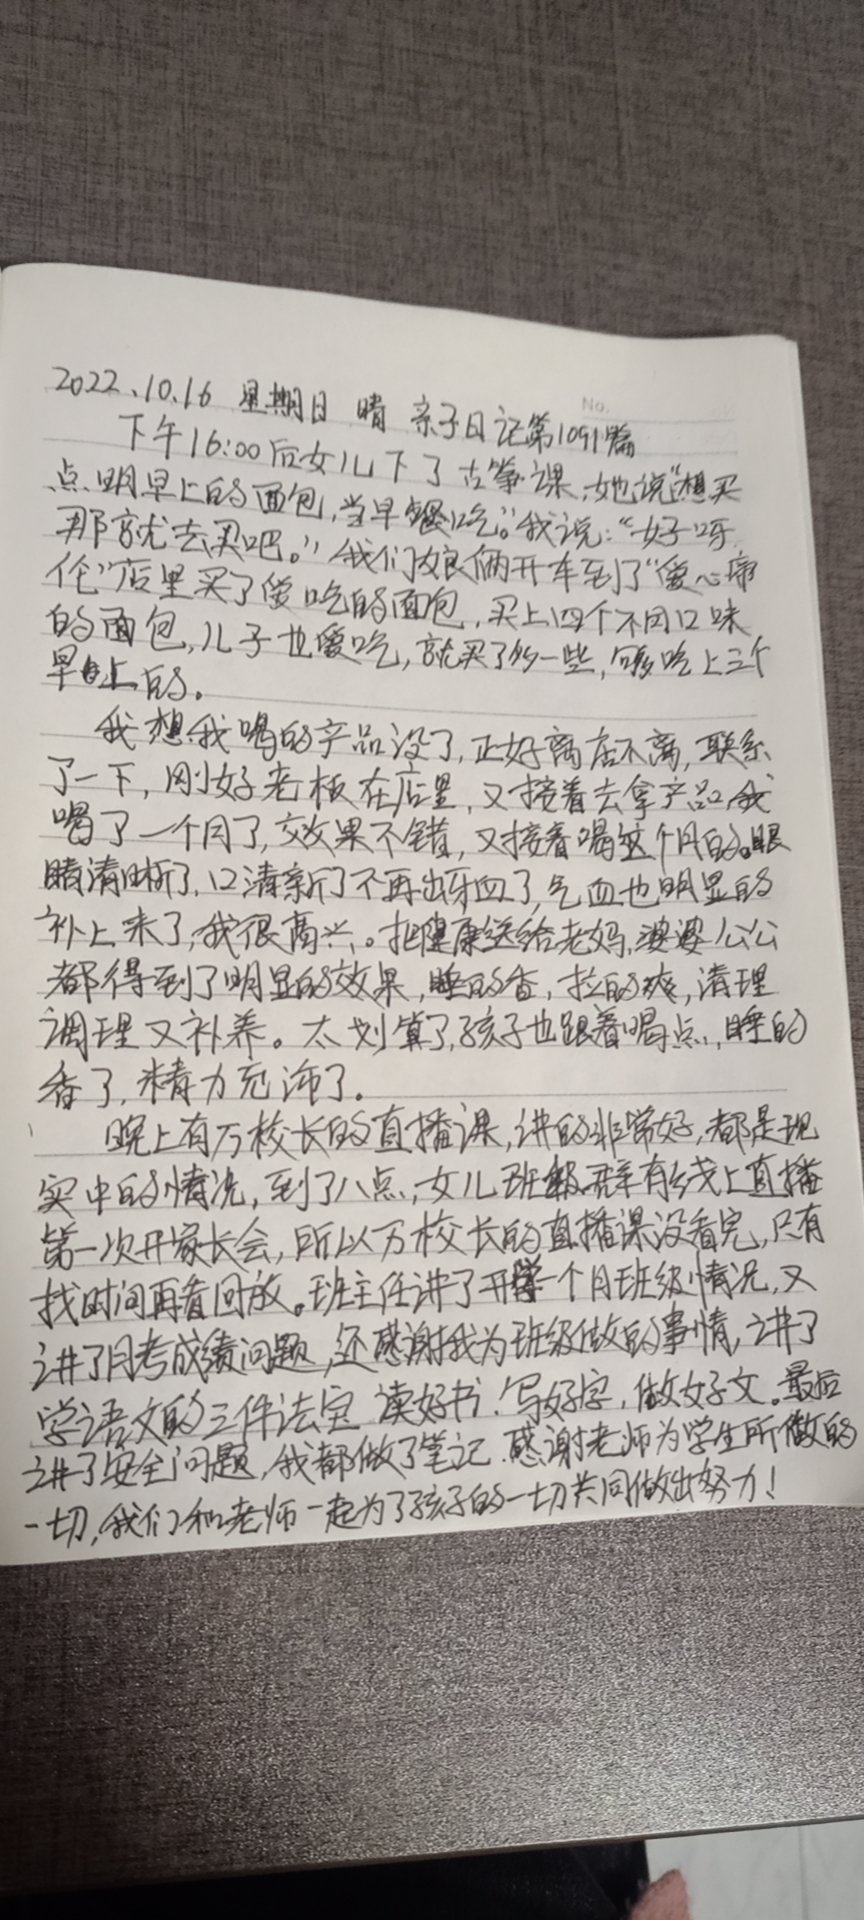 No.
2022.10.16 星期日 晴 亲子日记第1091篇
下午16:00后女儿下了古筝课,她说"想买
点明早上的面包,当早餐吃。"我说:"好呀
那就去买吧。"我们娘俩开车到了"爱心帝
伦"店里买了爱吃的面包,买上四个不同口味
的面包,儿子也爱吃,就买了多一些,够吃上三个
早上的。
我想我喝的产品没了,正好离店不离,联系
了一下,刚好老板在店里,又接着去拿产品,我
喝了一个月了,效果不错,又接着喝这个月的。眼
睛清晰了,口清新了不再出牙血了,气血也明显的
补上来了,我很高兴。把健康送给老妈,婆婆公公
都得到了明显的效果,睡的香,拉的爽,清理
调理又补养。太划算了,孩子也跟着喝点,睡的
香了,精力充沛了。
晚上有万校长的直播课,讲的非常好,都是现
实中的情况,到了八点,女儿班级有线上直播
第一次开家长会,所以万校长的直播课没看完,只有
找时间再看回放。班主任讲了开学一个月班级情况,又
讲了月考成绩问题,还感谢我为班级做的事情,讲了
学语文的三件法宝 读好书.写好字,做好文。最后
讲了安全问题,我都做了笔记.感谢老师为学生所做的
一切,我们和老师一起为了孩子的一切共同做出努力!